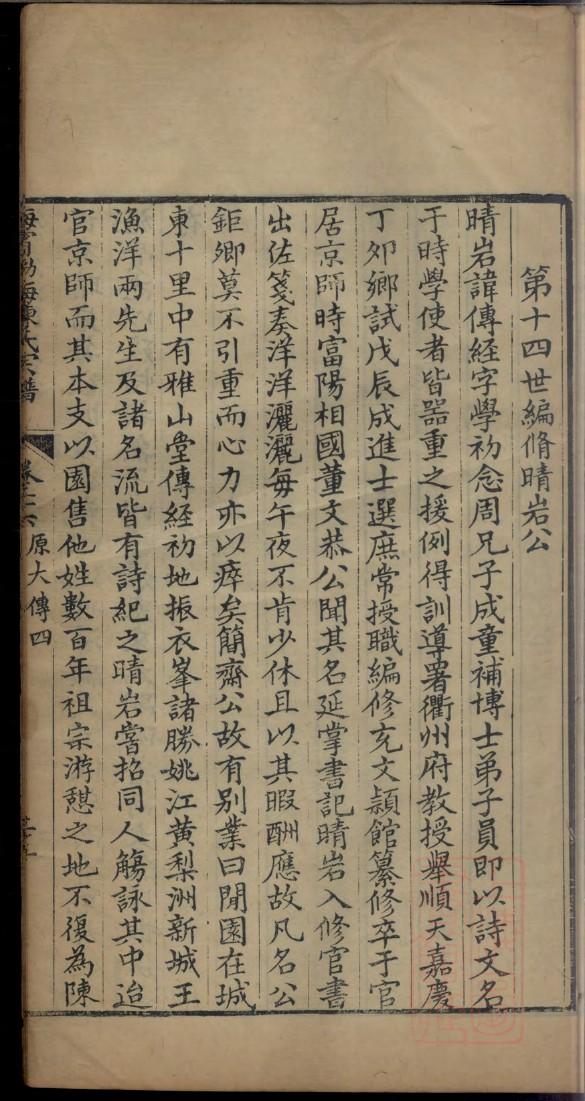 第十四世編脩晴岩公
晴岩諱傳經字學初念周兄子成童補博士弟子員即以詩文名
于時學使者皆器重之援例得訓導署衢州府教授舉順天嘉慶
丁卯鄉試戊辰成進士選庶常授職編修充文穎館纂修卒于官
居京師時富陽相國董文恭公聞其名延掌書記晴岩入修官書
出佐箋奏洋洋灑灑每午夜不肯少休且以其暇酬應故凡名公
鉅卿莫不引重而心力亦以瘁矣簡齋公故有别業曰閒園在城
東十里中有雅山堂傳經初地振衣峯諸勝姚江黄梨洲新城王
漁洋兩先生及諸名流皆有詩紀之晴岩嘗招同人觴詠其中迨
官京師而其本支以園售他姓數百年祖宗游憩之地不復為陳
海寧渤海陳氏宗譜
原大傳四